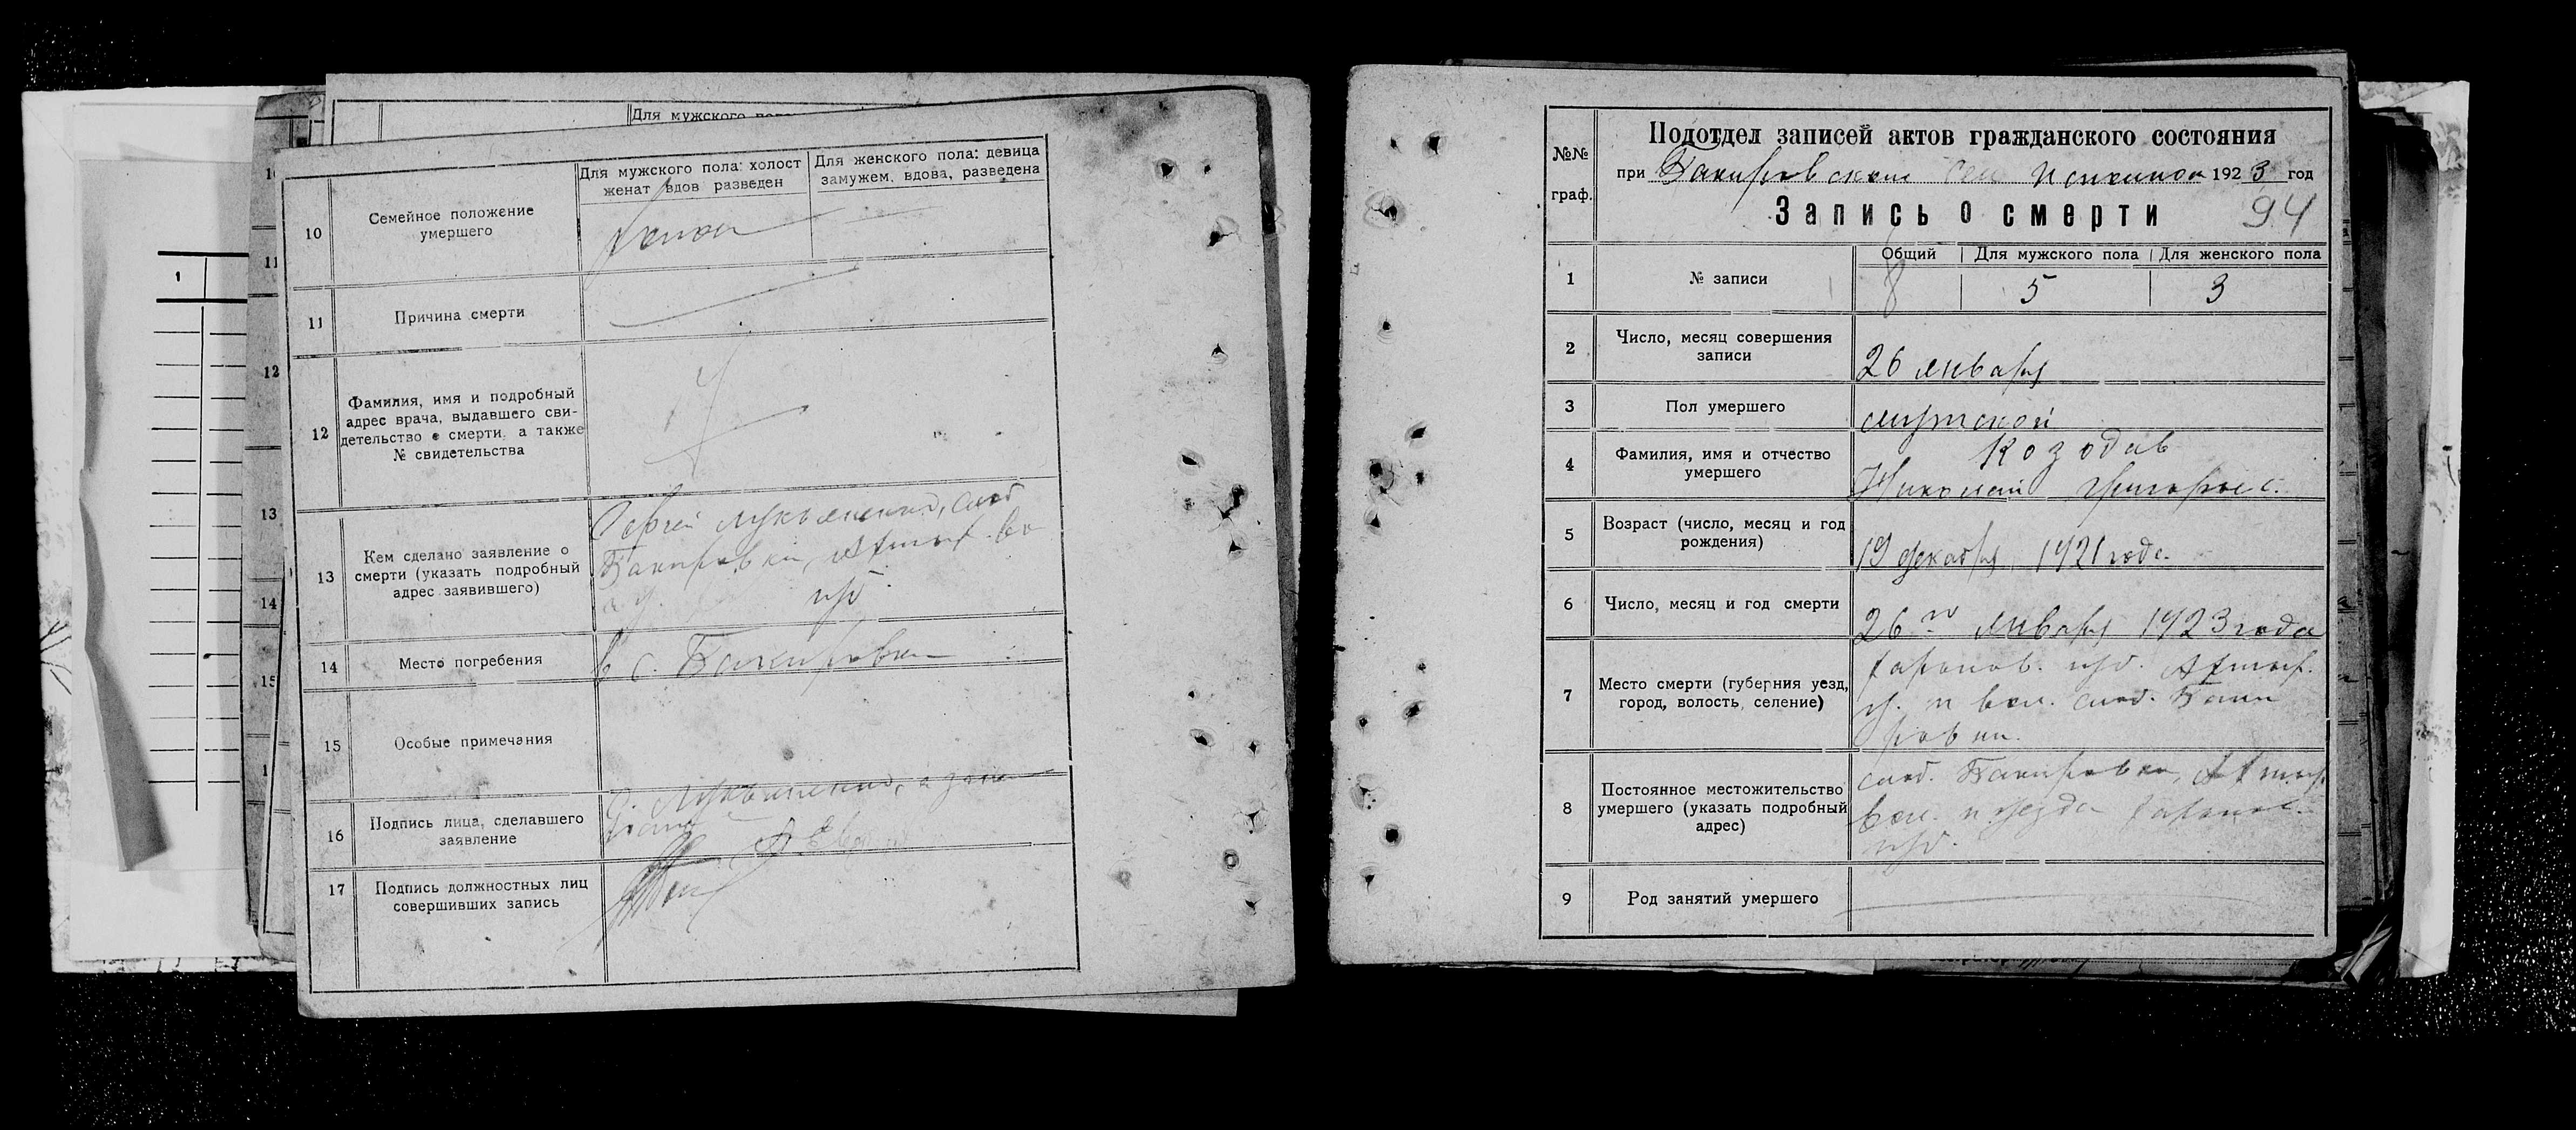 1
Для мужского
10
Семейное положение
умершего
Для мужского пола: холост
женат вдов разведен
Для женского пола: девица
замужем, вдова, разведена
11
Причина смерти
12
Фамилия, имя и подробный
адрес врача, выдавшего сви-
детельство о смерти, а также
№ свидетельства
13
Кем сделано заявление о
смерти (указать подробный
адрес заявившего)
Сергей Лукьяненко, слоб
Бакировки, Ахтыр. во
14
Место погребения
в с. Бакировки
15
Особые примечания
16
Подпись лица, сделавшего
заявление
17
Подпись должностных лиц
совершивших запись
№№
граф.
Подотдел записей актов гражданского состояния
при Бакировском 1923 год
Запись о смерти
94
1
№ записи
Общий
Для мужского пола
Для женского пола
8
5
3
2
Число, месяц совершения
записи
26 января
3
Пол умершего
мужской
4
Фамилия, имя и отчество
умершего
Козодав
Николай Григорьев.
5
Возраст (число, месяц и год
рождения)
19 декабря 1921 года.
6
Число, месяц и год смерти
26го января 1923 года
7
Место смерти (губерния уезд,
город, волость, селение)
Харьков. губ. Ахтыр.
у. и вол. слоб. Баки
ровки.
8
Постоянное местожительство
умершего (указать подробный
адрес)
слоб. Бакировка, Ахтыр
вол. и уезда Харьков.
губ.
9
Род занятий умершего